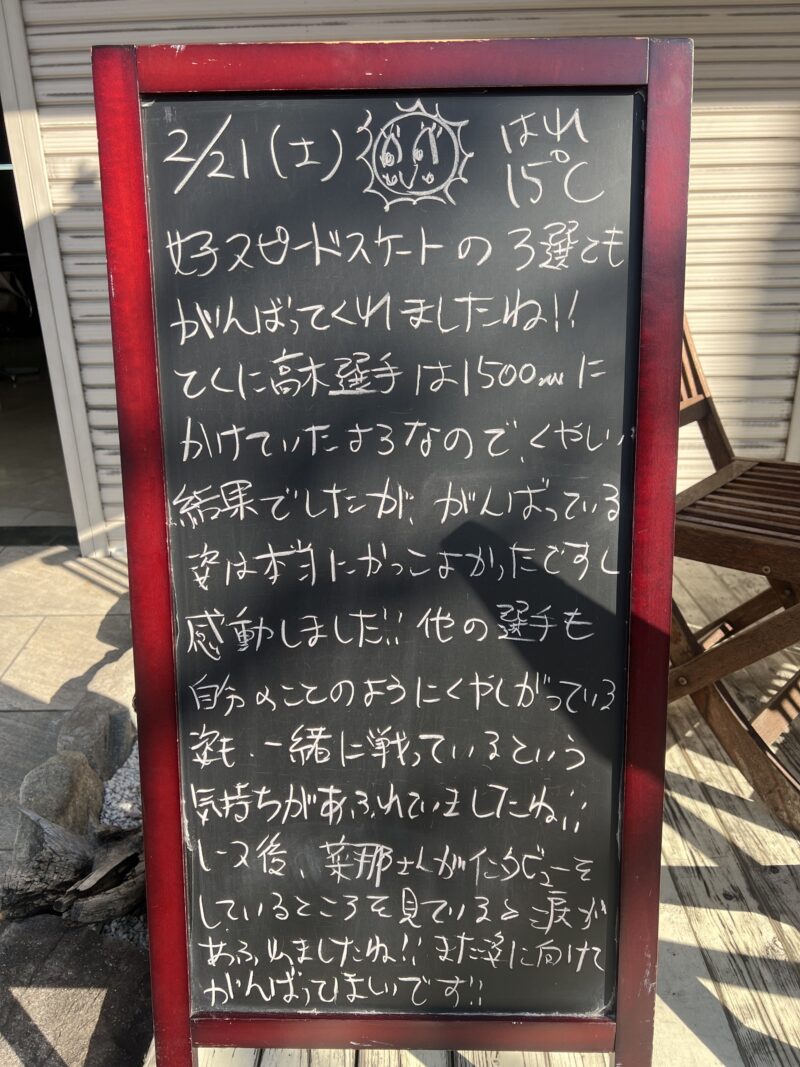 2/21(土) はれ 15℃
女子スピードスケートの3選とも
がんばってくれましたね!!
とくに高木選手は1500mに
かけていたようなので、くやしい
結果でしたが、がんばっている
姿は本当にかっこよかったですし
感動しました!! 他の選手も
自分のことのようにくやしがっている
姿も、一緒に戦っているという
気持ちがあふれていましたね!!
レース後、菜那さんがインタビューを
しているところを見ていると涙が
あふれましたね!! また次に向けて
がんばってほしいです!!